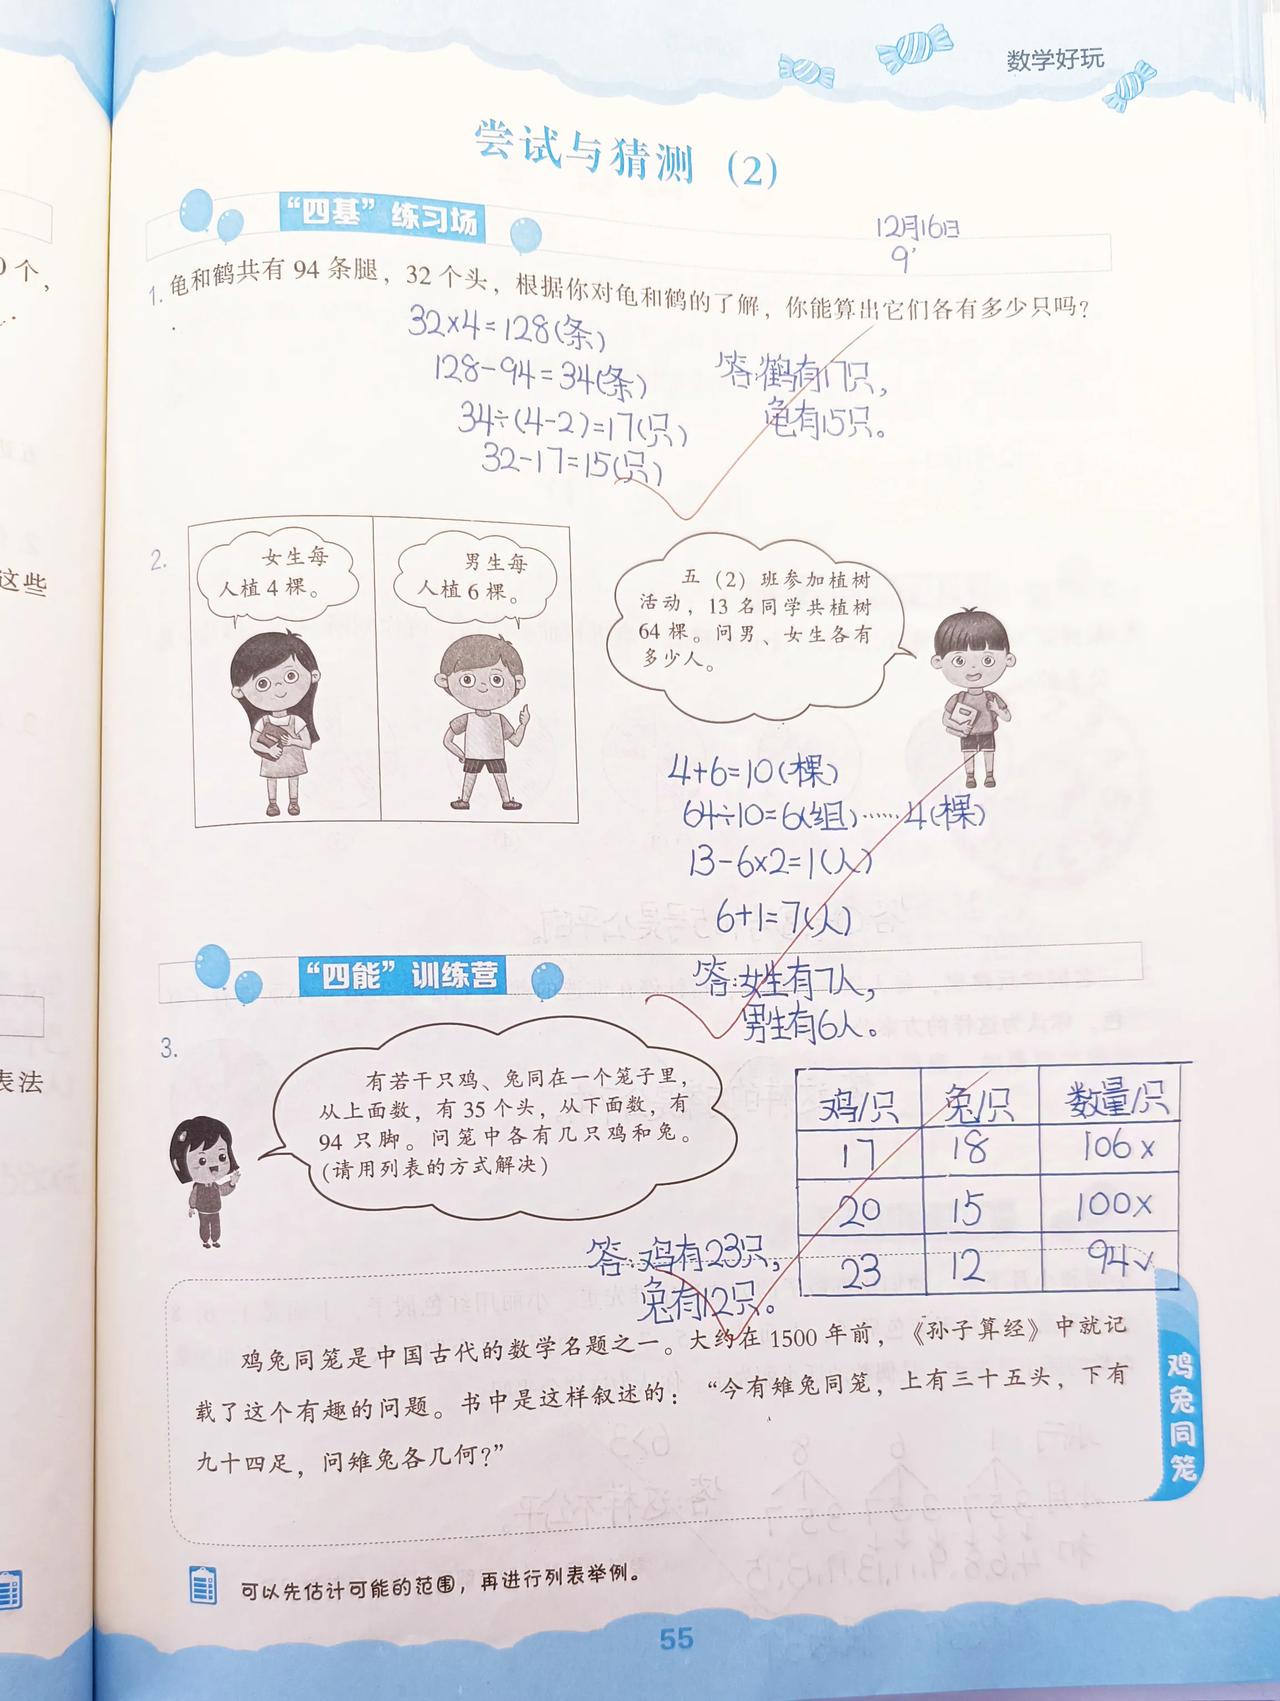 数学好玩
尝试与猜测（2）
“四基”练习场
12月16日
9'
1. 龟和鹤共有 94 条腿，32 个头，根据你对龟和鹤的了解，你能算出它们各有多少只吗？
32×4=128(条)
128-94=34(条)
34÷(4-2)=17(只)
32-17=15(只)
答:鹤有17只，
龟有15只。
2.
女生每
人植 4 棵。
男生每
人植 6 棵。
五（2）班参加植树
活动，13 名同学共植树
64 棵。问男、女生各有
多少人。
4+6=10(棵)
64÷10=6(组)……4(棵)
13-6×2=1(人)
6+1=7(人)
答:女生有7人，
男生有6人。
“四能”训练营
3.
有若干只鸡、兔同在一个笼子里，
从上面数，有 35 个头，从下面数，有
94 只脚。问笼中各有几只鸡和兔。
(请用列表的方式解决)
鸡/只 兔/只 数量/只
17 18 106×
20 15 100×
23 12 94✓
答:鸡有23只，
兔有12只。
鸡兔同笼是中国古代的数学名题之一。大约在 1500 年前，《孙子算经》中就记
载了这个有趣的问题。书中是这样叙述的：“今有雉兔同笼，上有三十五头，下有
九十四足，问雉兔各几何?”
鸡兔同笼
可以先估计可能的范围，再进行列表举例。
55
0个，
这些
表法